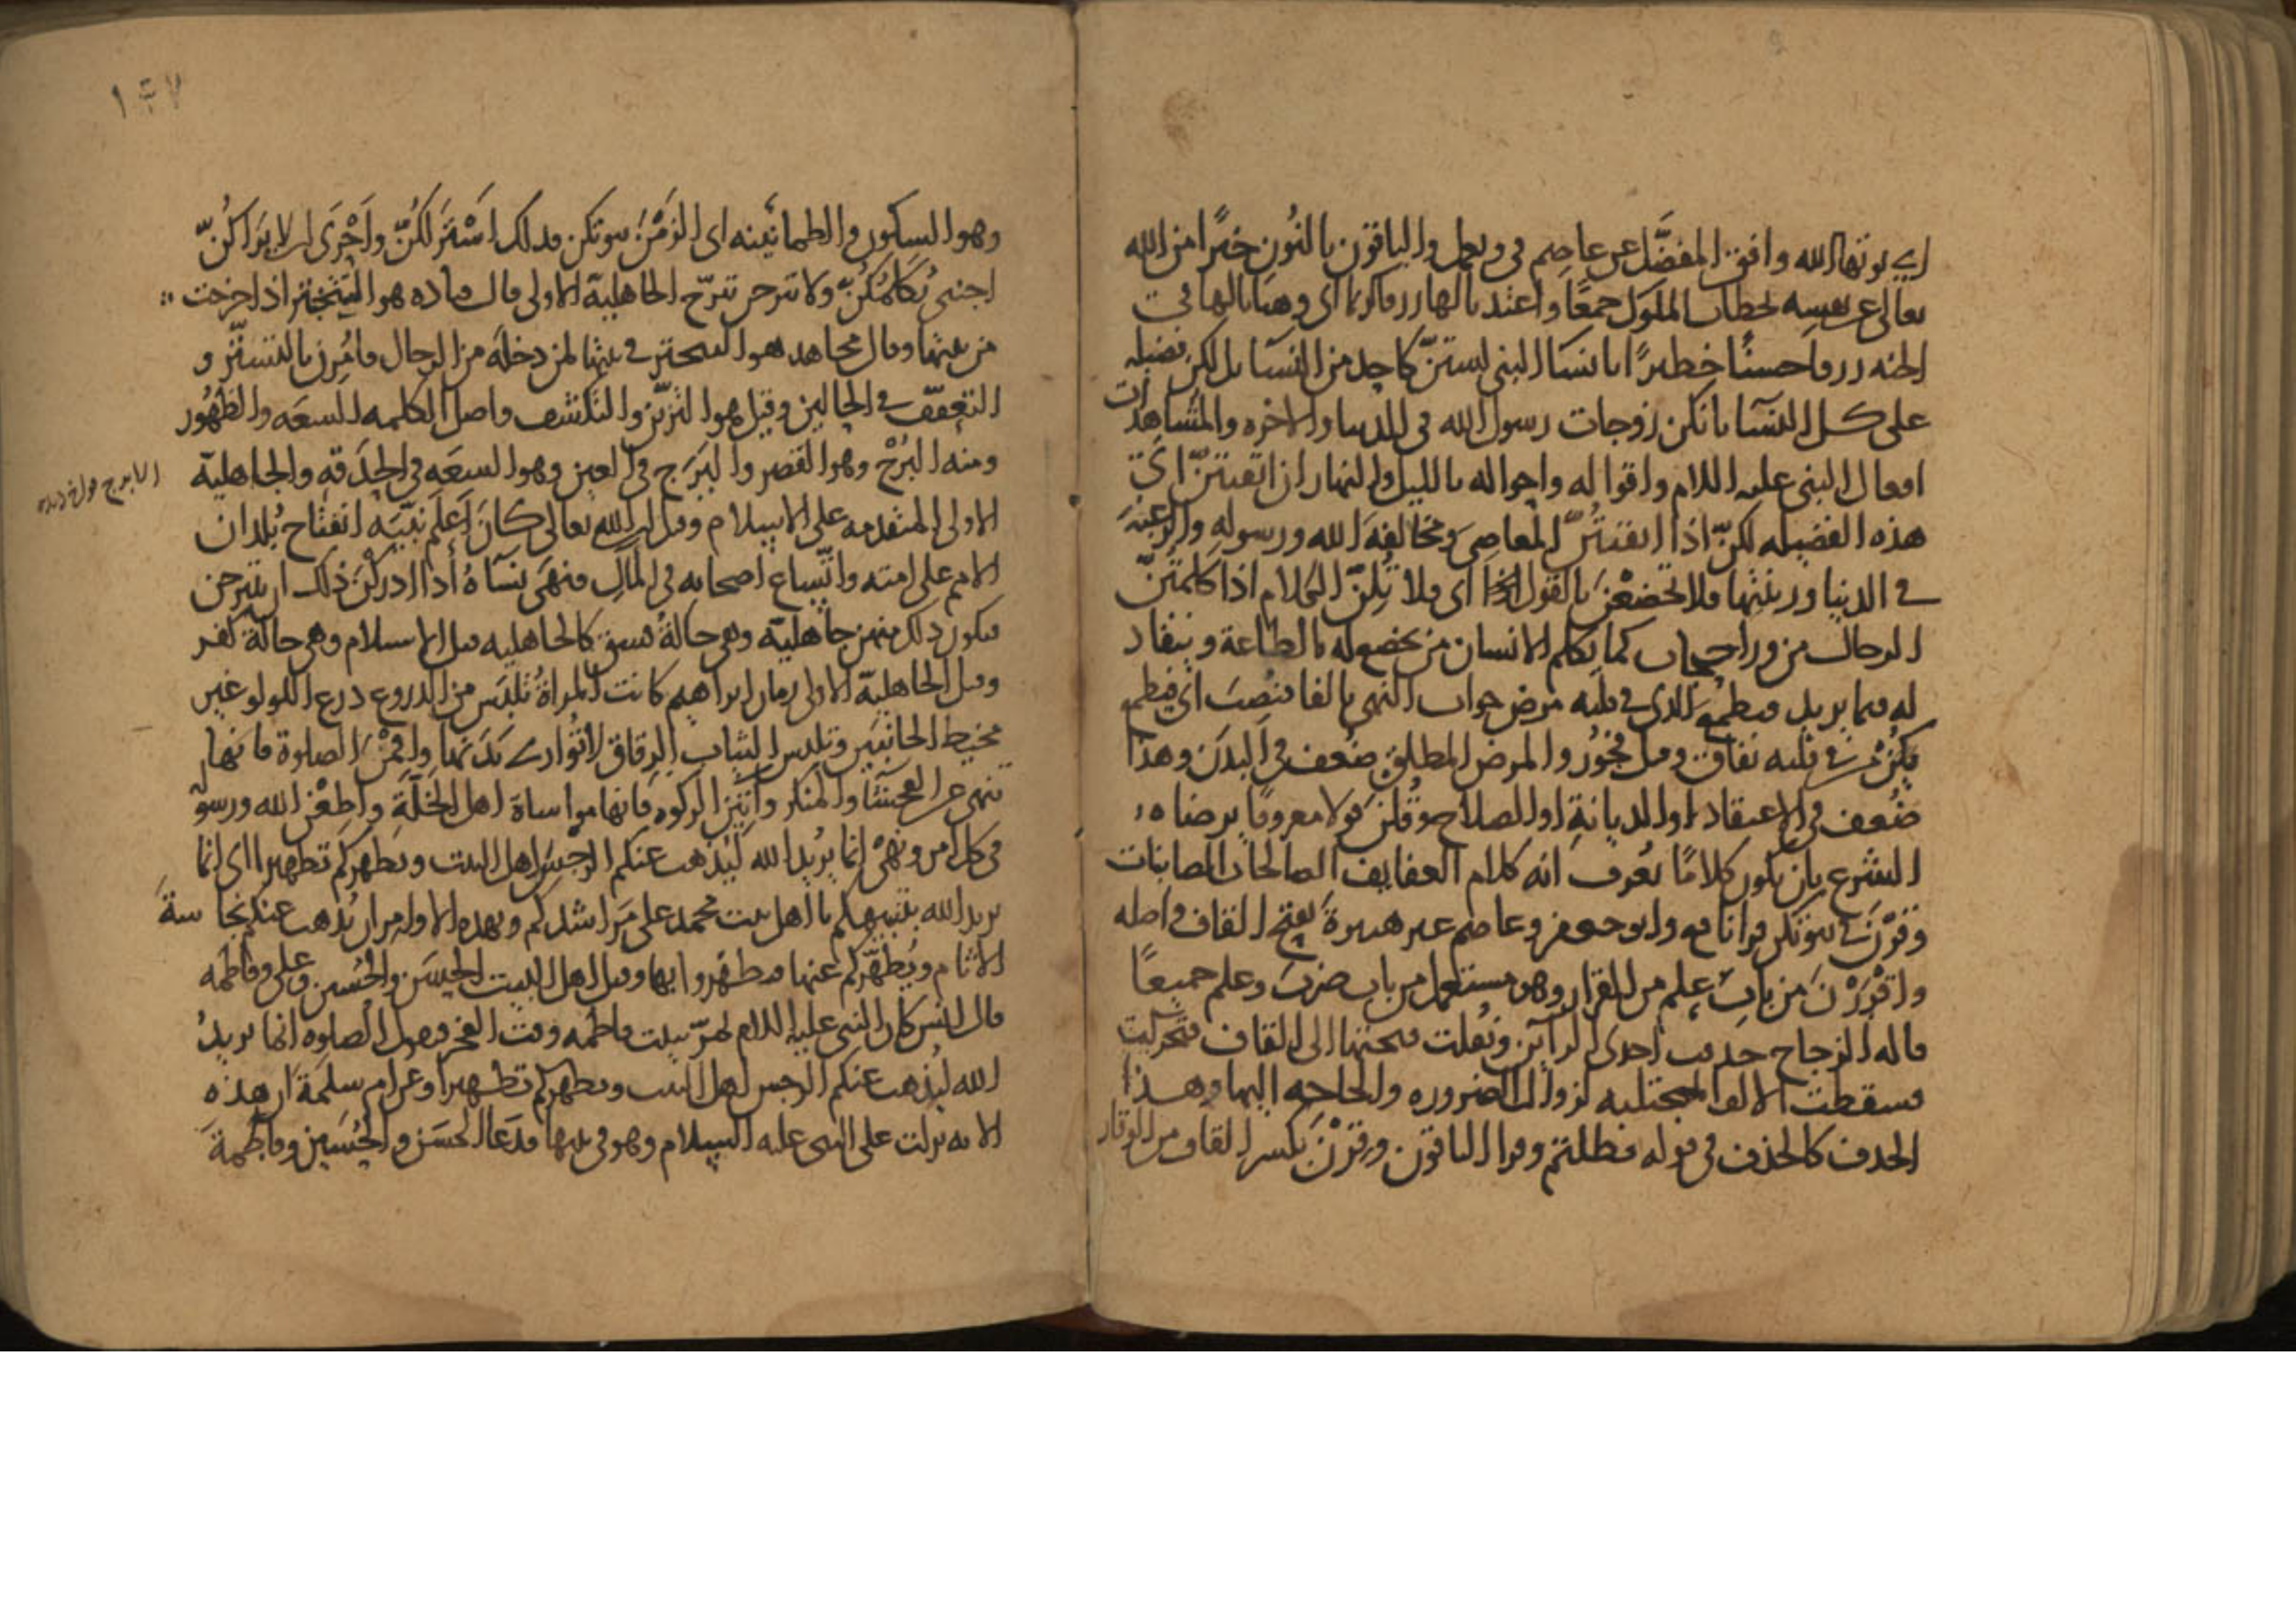 اي يوتها الله وافق المفضل عن عاصم في ويعمل والباقون بالنون خبرا من الله
تعالى عن نفسه لخطاب الملوك جمعا واعتدنا لها رزقا كريما اي وهبنا لها في
الجنه رزقا حسنا خطيرا يا نسا النبي لستن كاحد من النسا بل لكن فضيله
على كل النسا بانكن زوجات رسول الله في الدنيا والاخره والمشاهدات
افعال النبي عليه السلام واقواله واحواله بالليل والنهار ان اتقيتن اي
هذه الفضيله لكن اذا اتقيتن المعاصي ومخالفة الله ورسوله والرغبة
في الدنيا وزينتها فلا تخضعن بالقول اي فلا تلن الكلام اذا كلمتن
الرجال من ورا حجاب كما يكلم الانسان من يخضع له بالطاعة وينقاد
له فيما يريد فيطمع الذي في قلبه مرض جواب النهي بالفا فنصب اي فيطمع
من في قلبه نفاق وقيل فجور والمرض المطلق ضعف في البدن وهذا
ضعف في الاعتقاد او الديانة او الصلاح وقلن قولا معروفا يرضاه
الشرع بان يكون كلاما يعرف انه كلام العفايف الصالحات الصاينات
وقرن في بيوتكن قرا نافع وابو جعفر وعاصم غير هبيرة بفتح القاف واصله
واقررن من باب علم من القرار وهو مستعمل من باب ضرب وعلم جميعا
قاله الزجاج حذفت احدى الراين ونقلت فتحتها الى القاف فتحركت
فسقطت الالف المجتلبه لزوال الضروره والحاجه اليها وهذا
الحذف كالحذف في قوله فظلتم وقرا الباقون وقرن بكسر القاف من الوقار
١٤٧
وهو السكون والطمانينه اي الزمن بيوتكن فذلك استر لكن واحرى ان لا يراكن
اجنبي يكلمكن ولا تبرجن تبرج الجاهلية الاولى قال قتاده هو التبختر اذا خرجت
من بيتها وقال مجاهد هو التبختر في بيتها لمن دخله من الرجال فامرن بالتستر و
التعفف في الحالين وقيل هو التزين والتكشف واصل الكلمه السعه والظهور
ومنه البرج وهو القصر والبرج في العين وهو السعه في الحدقه والجاهلية
الاولى المتقدمه على الاسلام وقيل ان الله تعالى كان اعلم نبيه انفتاح بلدان
الامم على امته واتساع اصحابه في المال فنهى نساه اذا ادركن ذلك ان يتبرجن
فيكون ذلك منهن جاهلية وهي حالة فسق كالجاهليه قبل الاسلام وهي حالة كفر
وقيل الجاهلية الاولى زمان ابراهيم كانت المراة تلبس من الدروع درع اللولو غير
مخيط الجانبين وتلبس الثياب الرقاق لا تواري بدنها واقمن الصلوة فانها
تنهى عن الفحشا والمنكر واتين الزكوه فانها مواساة اهل الخلة واطعن الله ورسوله
في كل امر ونهي انما يريد الله ليذهب عنكم الرجس اهل البيت ويطهركم تطهيرا اي انما
يريد الله بتنبيهكم يا اهل بيت محمد على مراشدكم وبهذه الاوامر ان يذهب عنكم نجاسة
الاثام ويطهركم عنها فتطهروا بها وقيل اهل البيت الحسن والحسين وعلي وفاطمه
قال انس كان النبي عليه السلام يمر ببيت فاطمه وقت الفجر فيقول الصلوه انما يريد
الله ليذهب عنكم الرجس اهل البيت ويطهركم تطهيرا وعن ام سلمة ان هذه
الايه نزلت على النبي عليه السلام وهو في بيتها فدعا الحسن والحسين وفاطمة